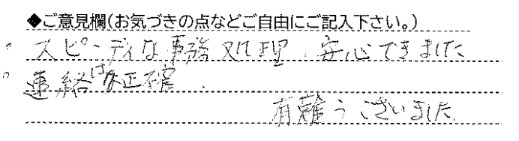 ◆ご意見欄(お気づきの点などご自由にご記入下さい。)
。スピーディな事務処理、安心できました
。連絡は正確、
有難うございました